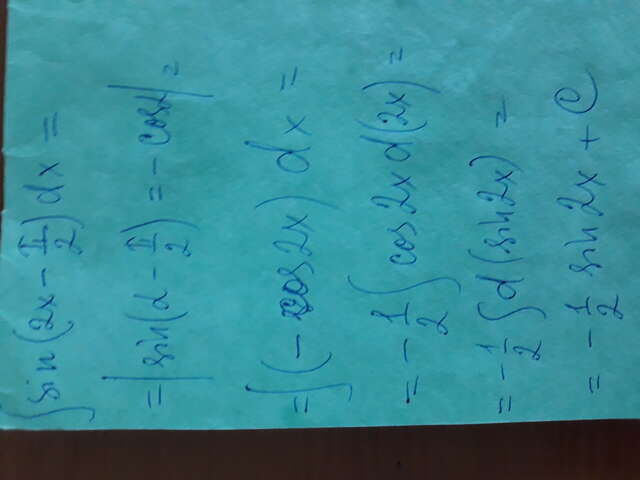 ∫ sin(2x - π/2) dx =
= | sin(α - π/2) = - cosα | =
= ∫ (- cos2x) dx =
= - 1/2 ∫ cos2x d(2x) =
= - 1/2 ∫ d(sin2x) =
= - 1/2 sin2x + C